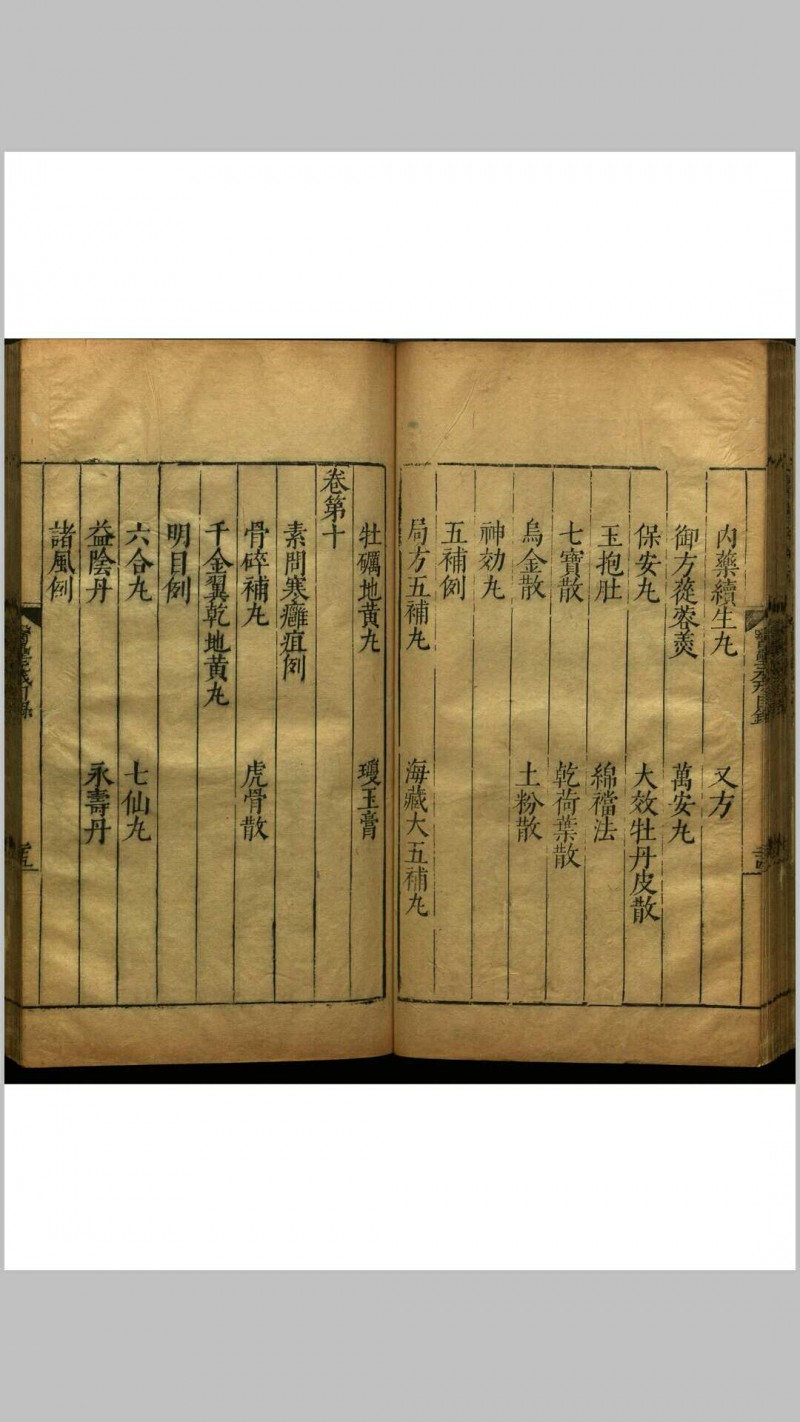 內藥續生丸　又方
御方蓯蓉羹　萬安丸
保安丸　大效牡丹皮散
玉抱肚　綿襠法
七寶散　乾荷葉散
烏金散　土粉散
神効丸
五補例
局方五補丸　海藏大五補丸
牡礪地黃丸　瓊玉膏
卷第十
素問寒癰疽例
骨碎補丸　虎骨散
千金翼乾地黃丸
明目例
六合丸　七仙丸
益陰丹　永壽丹
諸風例